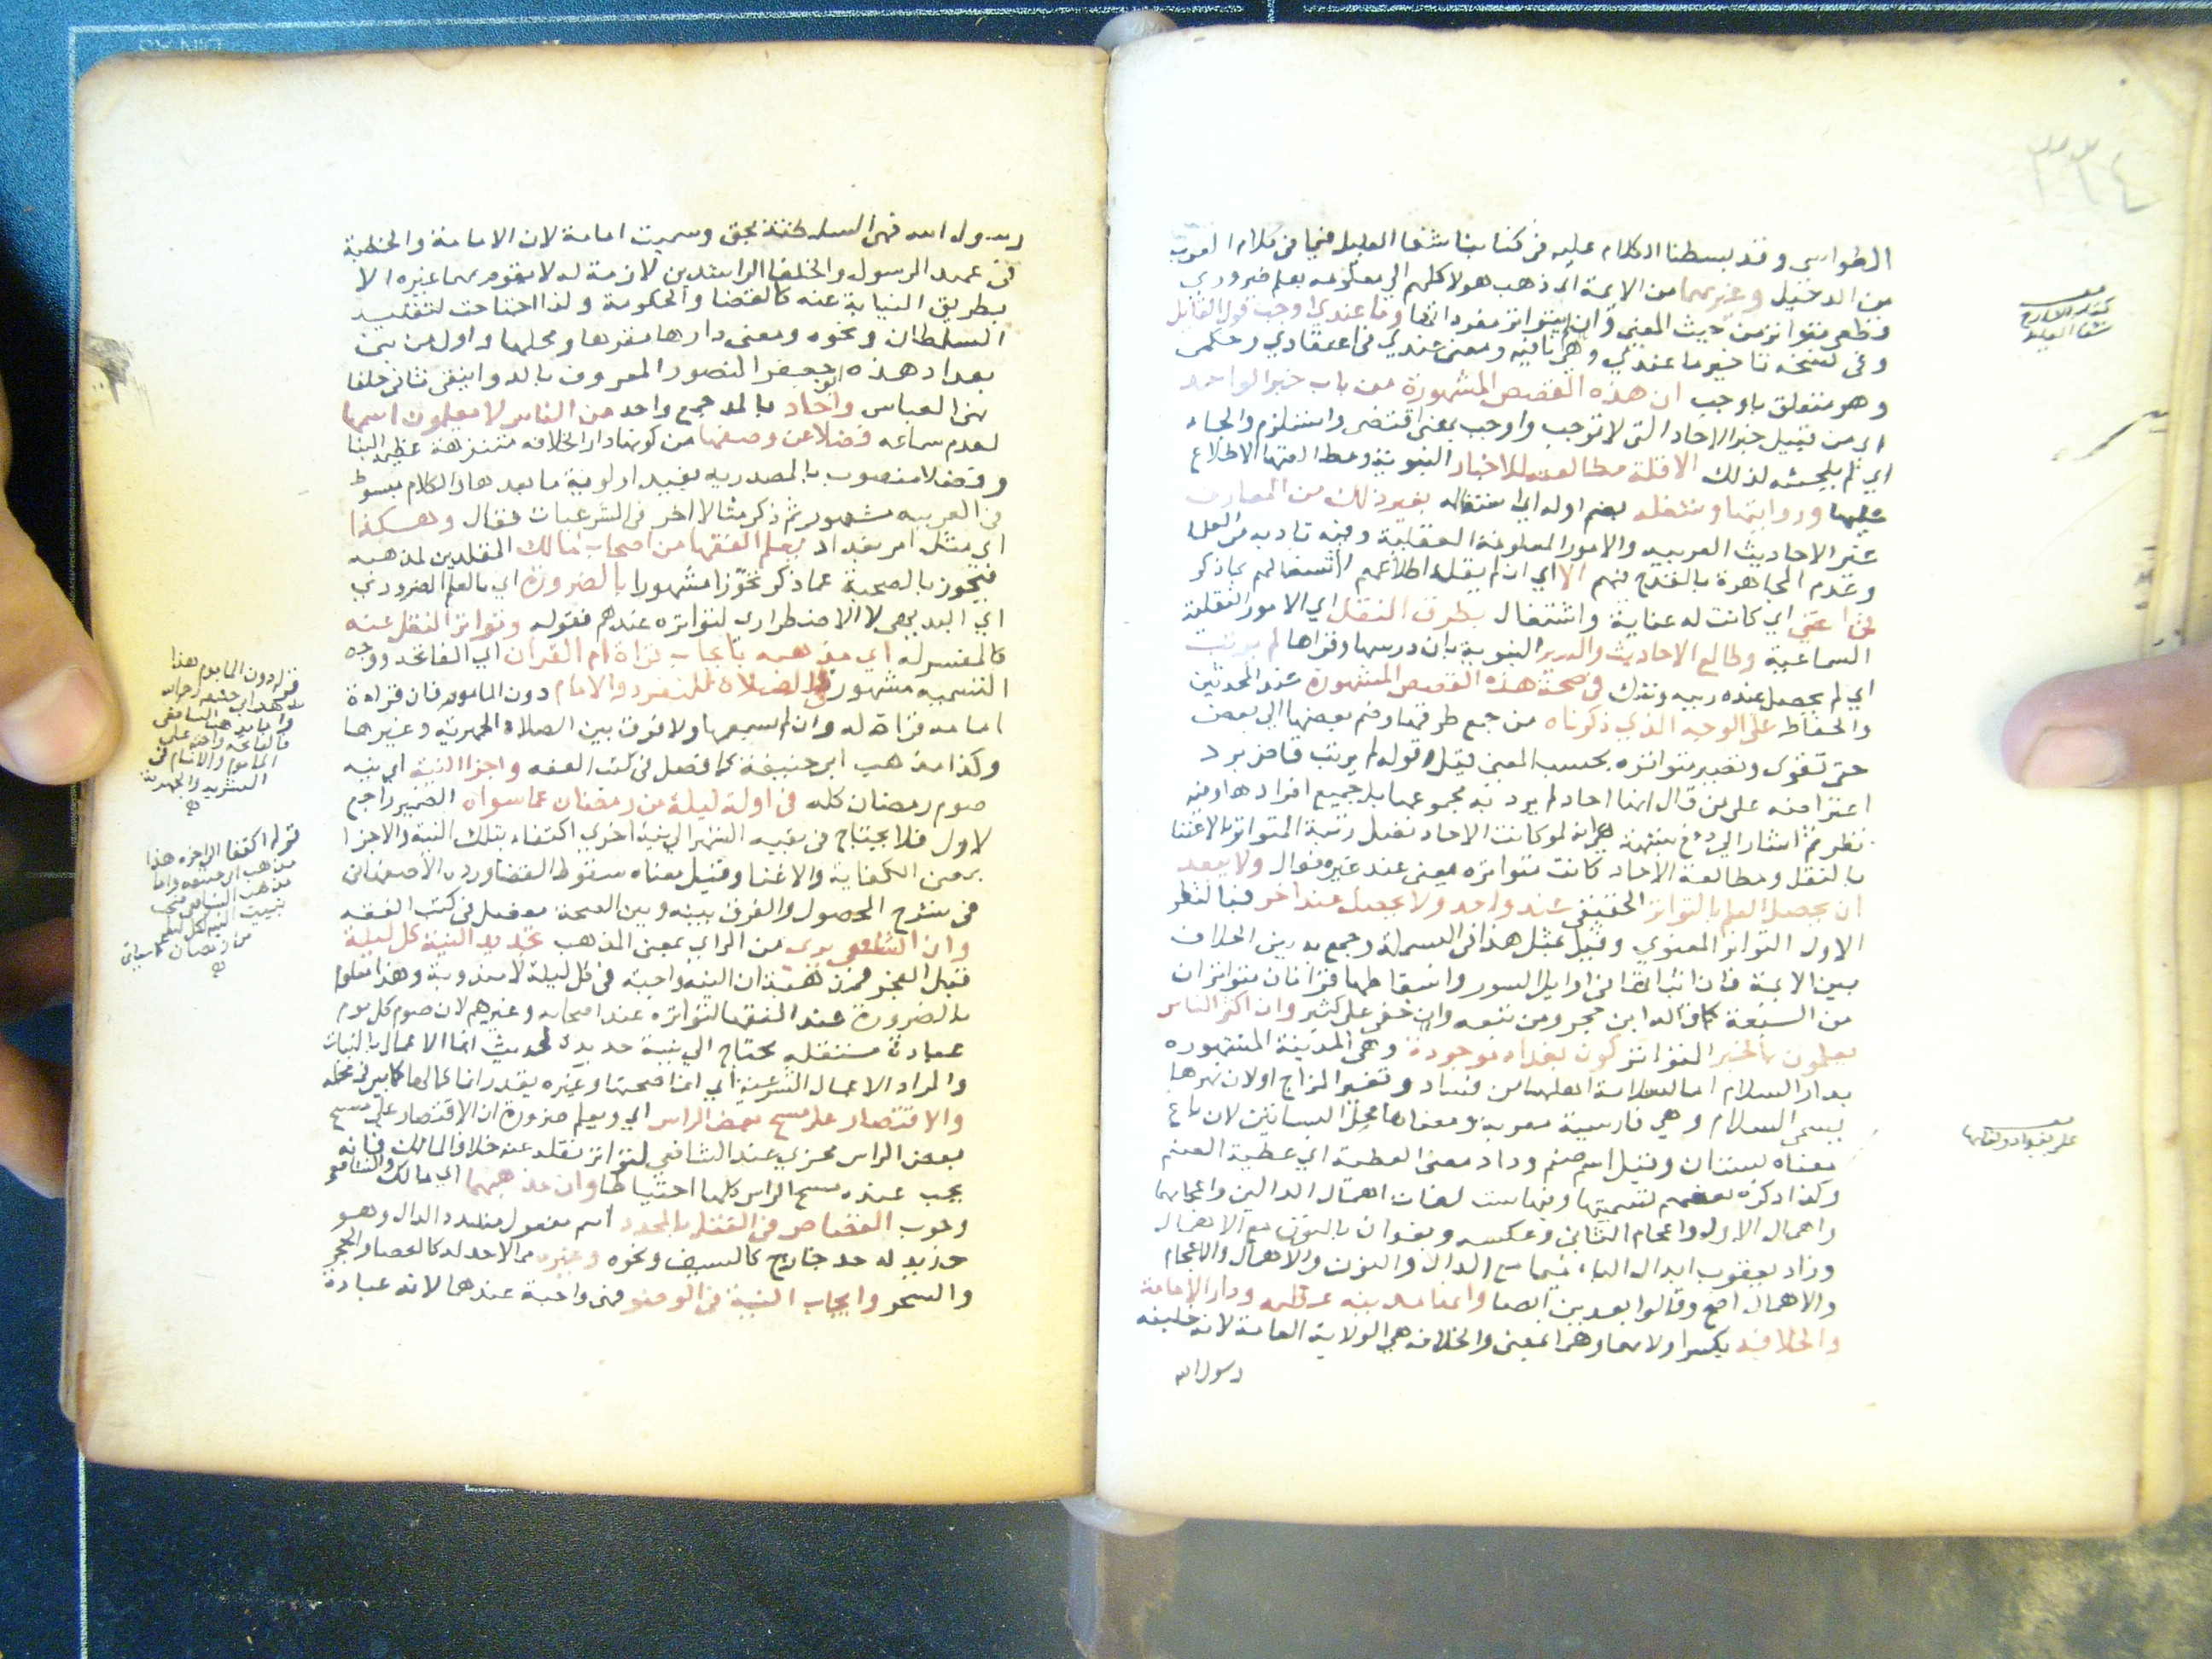 ٣٣٤
الطواسي وقد بسطنا الكلام عليه في كتابنا شفا الغليل فيما في كلام العرب
من الدخيل وغيرهما من الايمة اي ذهب هولا كلهم الي معلومه بعلم ضروري
وقطعي متواتر من حيث المعني وان لم يتواتر مفرداتها وما عندي اوجب قول القايل
وفي نسخة تاخير ما عندي وهي نافيه ومعني عندي في اعتقادي وحكمي
وهو متعلق باوجب ان هذه القصص المشهورة من باب خبر الواحد
اي من قبيل خبر الاحاد التي لا توجب واوجب بمعني اقتضي واستلزم والجاء
اي لم يلجئه لذلك الا قلة مطالعته للاخبار النبوية ومطالعتها الاطلاع
عليها وروايتها وشغله بضم اوله اي اشتغاله بغير ذلك من المعارف
غير الاحاديث العربيه والامور المعلومة العقلية وفيه تادب مع العلما
وعدم المجاهرة بالقدح فيهم الا اي ان لم يقله اطلاعهم اشتغالهم بما ذكر
فمن اعتني اي كانت له عناية واشتغال بطرق النقل اي الامور النقلية
السماعية وطالع الاحاديث والسير النبوية بان درسها وقراها لم يرتب
اي لم يحصل عنده ريبه وشك في صحة هذه القصص المشهورة عند المحدثين
والحفاظ على الوجه الذي ذكرناه من جمع طرقها وضم بعضها الي بعض
حتي تقوي وتصير متواتره بحسب المعني قيل وقوله لم يرتب قاصر يرد
اعتراضه علي من قال انها احاد لم يرد به مجموعها بل جميع افرادها وفيه
نظر ثم اشار الي دفع شبهة هي انه لو كانت الاحاد تفيد رتبة المتواتر بالاعتنا
بالنقل ومطالعة الاحاد كانت متواتره معني عند غيره فقال ولا يبعد
ان يحصل العلم بالتواتر الحقيقي عند واحد ولا يحصل عند اخر فبالنظر
الاول التواتر المعنوي وقيل مثل هذا في البسملة وجمع به بين الخلاف
بين الايمة فان اثباتها في اوايل السور واسقاطها قراتان متواترتان
من السبعة كما قاله ابن حجر ومن تبعه وان خفي علي كثير وان اكثر الناس
يعلمون بالخبر المتواتر كون بغداد موجودة وهي المدينة المشهوره
بدار السلام اما لسلامة اهلها من فساد وتغير المزاج او لان نهرها
يسمي السلام وهي فارسية معربة ومعناها محل البساتين لان باغ
معناه بستان وقيل اسم صنم وداد معني العطية اي عطية الصنم
وكذا ذكره بعضهم لتسميتها وفيها ست لغات اهمال الدالين واعجامهما
واهمال الاول واعجام الثاني وعكسه وبغدان بالنون مع الاهمال
وزاد يعقوب ابدال الباء ميما مع الدال والنون والاهمال والاعجام
والاهمال افصح وقالوا بعدين ايضا وانها مدينه عظيمه ودار الامامة
والخلافة بكسر اولهما وهما بمعني والخلافه هي الولاية العامة لانه خليفه
رسول الله
كتاب الشارح
شفا الغليل
علي بغداد ولغاتها
رسول الله فهي السلطنة بحق وسميت امامة لان الامامة والخطبة
في عهد الرسول والخلفا الراشدين لازمة له لا يقوم بهما غيره الا
بطريق النيابة عنه كالقضا والحكومة ولذا احتاجت لتقليد
السلطان ونحوه ومعني دارها مقرها ومحلها واول من بني
بغداد هذه ابو جعفر المنصور المعروف بالدوانيقي ثاني خلفا
بني العباس واحاد بالمد جمع واحد من الناس لا يعلمون اسمها
لعدم سماعه فضلا عن وصفها من كونها دار الخلافه متنزهة عظيمة البنا
وفضلا منصوب بالمصدريه يفيد اولوية ما بعدها والكلام مبسوط
في العربيه مشهور ثم ذكر مثالا اخر في الشرعيات فقال وهكذا
اي مثل امر بغداد يعلم الفقها من اصحاب مالك المقلدين لمذهبه
فيجوز بالصحبة عما ذكر تجوزا مشهورا بالضرورة اي بالعلم الضروري
اي البديهي لا الاضطراري لتواتره عندهم فقوله وتواتر النقل عنه
كالمفسر له اي مذهبه بايجاب قراة ام القران اي الفاتحه ووجه
التسميه مشهور في الصلاة للمنفرد والامام دون الماموم فان قراءة
امامه قراة له وان لم يسمعها ولا فرق بين الصلاة الجهرية وغيرها
وكذا مذهب ابي حنيفة كما فصل في كتب الفقه واجزا النية اي نيه
صوم رمضان كله في اولة ليلة من رمضان عما سواه الضمير راجع
لاول فلا يحتاج في بقيه الشهر الي نية اخري اكتفاء بتلك النية والاجزا
بمعني الكفاية والاغنا وقيل معناه سقوط القضا ورده الاصفهاني
في شرح المحصول والفرق بينه وبين الصحة مفصل في كتب الفقه
وان الشافعي يري من الراي بمعني المذهب تجديد النية كل ليلة
قبل الفجر فمذهبه ان النيه واجبة في كل ليلة لا مندوبة وهذا معلوم
بالضرورة عند الفقها لتواتره عند اصحابه وغيرهم لان صوم كل يوم
عبادة مستقله يحتاج الي نية جديدة لحديث انما الاعمال بالنيات
والمراد الاعمال الشرعية اي انما صحتها وغيره يقدر انما كمالها كما بين في محله
والاقتصار علي مسح بعض الراس اي ويعلم ضرورة ان الاقتصار علي مسح
بعض الراس مجزي عند الشافعي لتواتر نقله عنه خلافا لمالك فانه
يجب عنده مسح الراس كلها احتياطا وان مذهبهما اي مالك والشافعي
وجوب القصاص في القتل بالمحدد اسم مفعول مشدد الدال وهو
حديد له حد جارح كالسيف ونحوه وغيره مما لا حد له كالعصا والحجر
والسحر وايجاب النية في الوضو فهي واجبة عندهما لانه عبادة
قوله دون الماموم هذا
مذهب ابي حنيفه رحمه الله
واما مذهب الشافعي
فالفاتحه واجبه علي
الماموم والامام في
السرية والجهرية
قوله اكتفا الي اخره هذا
مذهب ابي حنيفه واما
مذهب الشافعي فيجب
تبييت النيه لكل ليلة
من رمضان كما سياتي